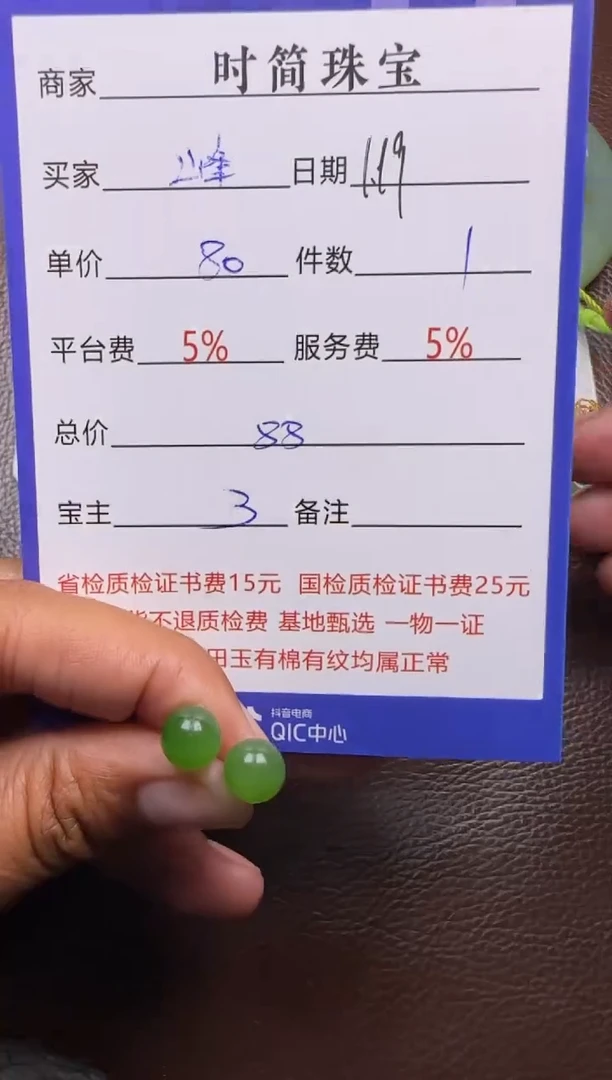 商家 时简珠宝
买家 山峰 日期 1.19
单价 80 件数 1
平台费 5% 服务费 5%
总价 88
宝主 3 备注
省检质检证书费15元 国检质检证书费25元
不退质检费 基地甄选 一物一证
田玉有棉有纹均属正常
抖音电商
QIC中心